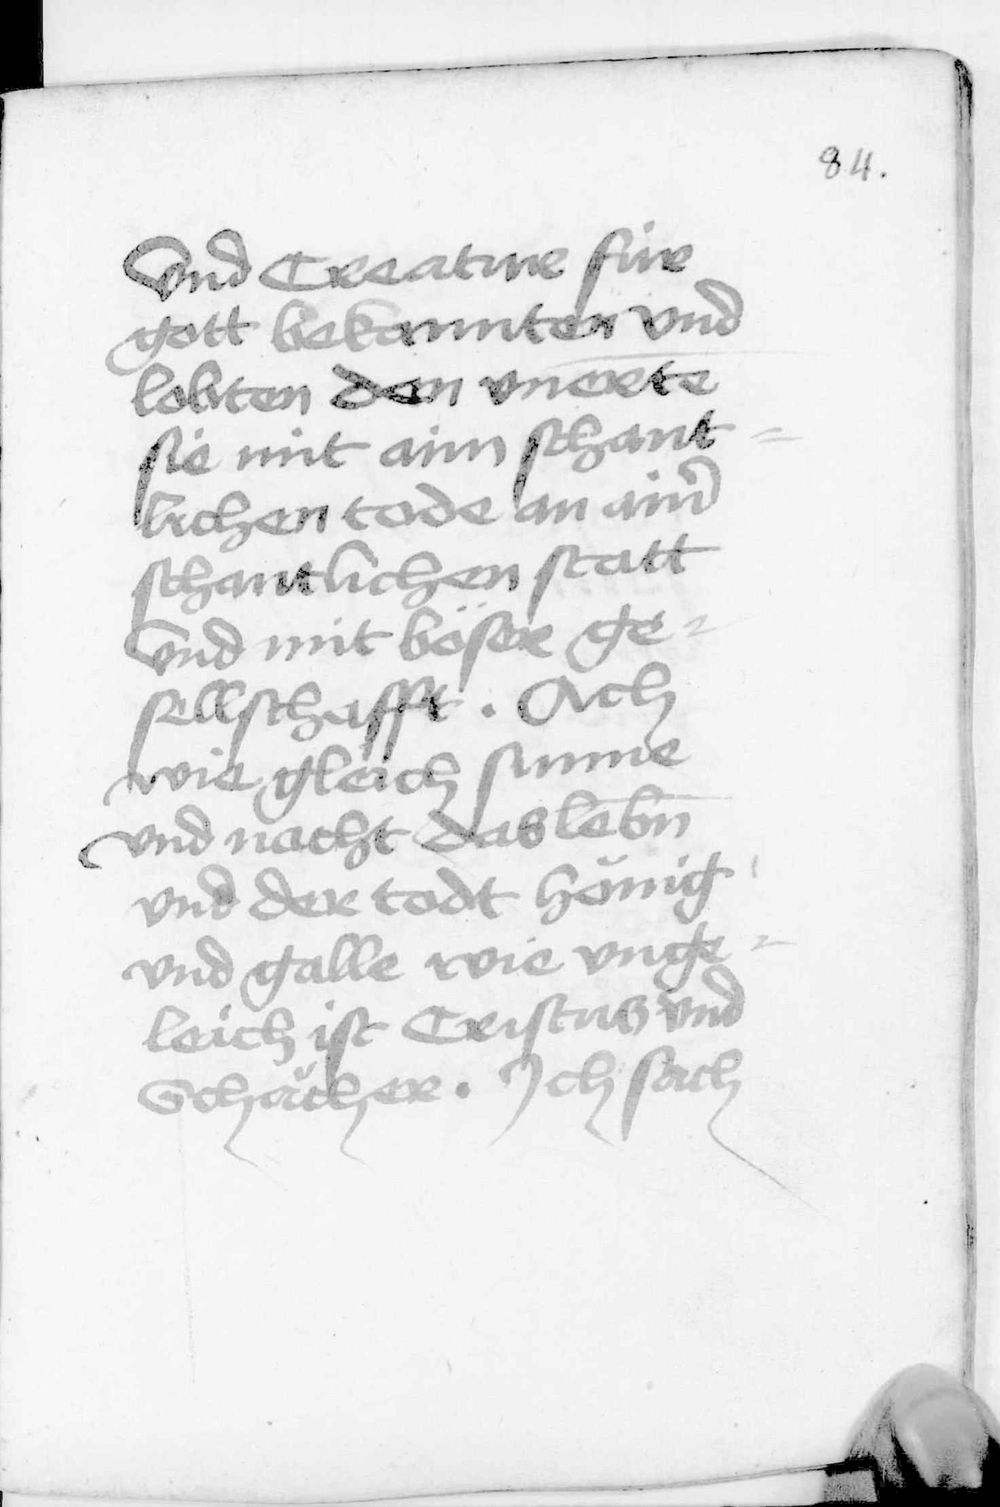 84.
Vnd Creatur für
gott bekannten vnd
lobten den vnerte
sie mit aim schant=
lichen tode an aim̄
schantlichen statt
Vnd mit böser ge=
sellschafft. Ach
wie gleich sunne
vnd nacht das lebn̄
vnd der todt hönig
vnd galle wie vnge=
leich ist Cristus vnd
Schächer. Ich sach